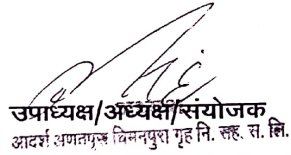 उपाध्यक्ष/अध्यक्ष/संयोजक
आदर्श चिमनपुरा गृह नि. सह. स. लि.